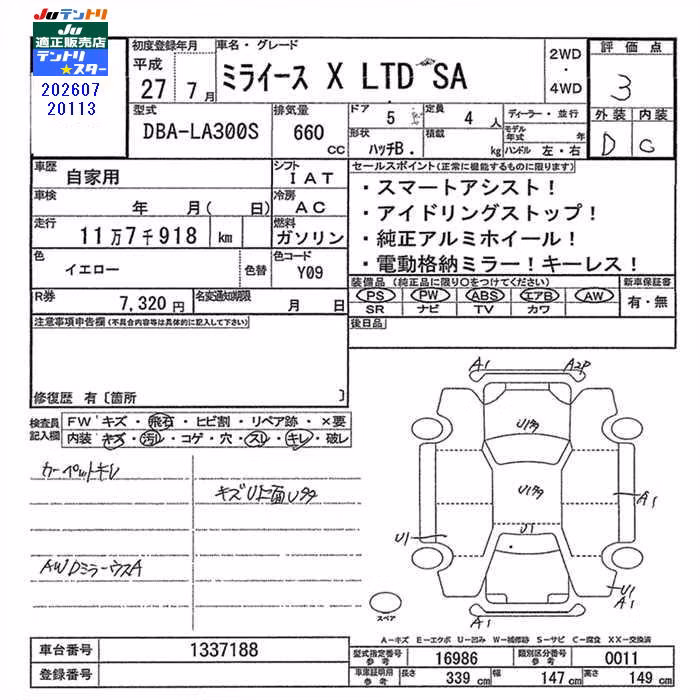 Juテントリ
JU
適正販売店
テントリ
★スター
202607
20113
初度登録年月
平成
27 年 7 月
車名・グレード
ミライース X LTD SA
2WD
・
4WD
評価点
3
外装 内装
D C
型式
DBA-LA300S
排気量
660 CC
ドア 5
形状 ハッチB.
定員 4 人
積載 kg
ディーラー・並行
モデル年式 年
ハンドル 左・右
車歴 自家用
シフト IAT
車検 年 月( 日)
冷房 AC
走行 11万7千918 km
燃料 ガソリン
色 イエロー 色替
色コード Y09
R券 7,320円
名変通知期限 月 日
セールスポイント(正常に機能するものに限ります)
・スマートアシスト!
・アイドリングストップ!
・純正アルミホイール!
・電動格納ミラー!キーレス!
装備品 (純正品に限り○をつけてください)
PS PW ABS エアB AW
SR ナビ TV カワ
新車保証書
有・無
後日品
注意事項申告欄(不具合内容等は具体的に記入して下さい)
修復歴 有〔箇所 〕
検査員記入欄
FW キズ・飛石・ヒビ割・リペア跡・×要
内装 キズ・汚レ・コゲ・穴・スレ・キレ・破レ
カーペットキレ
キズU上面U多
AWDミラーウスA
A1 A2P
U1多
U1多
U1
A1
U1
U1
A1
A1
スペア
A−キズ E−エクボ U−凹み W−補修跡 S−サビ C−腐食 XX−交換済
車台番号 1337188
登録番号
型式指定番号 参考 16986
類別区分番号 参考 0011
車庫証明用 参考 長さ 339 cm 幅 147 cm 高さ 149 cm